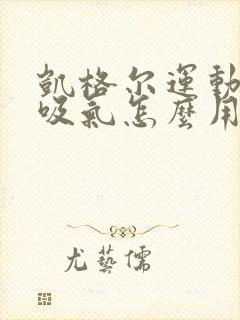 凯格尔運動
吸氣怎麼用
尤藝儒